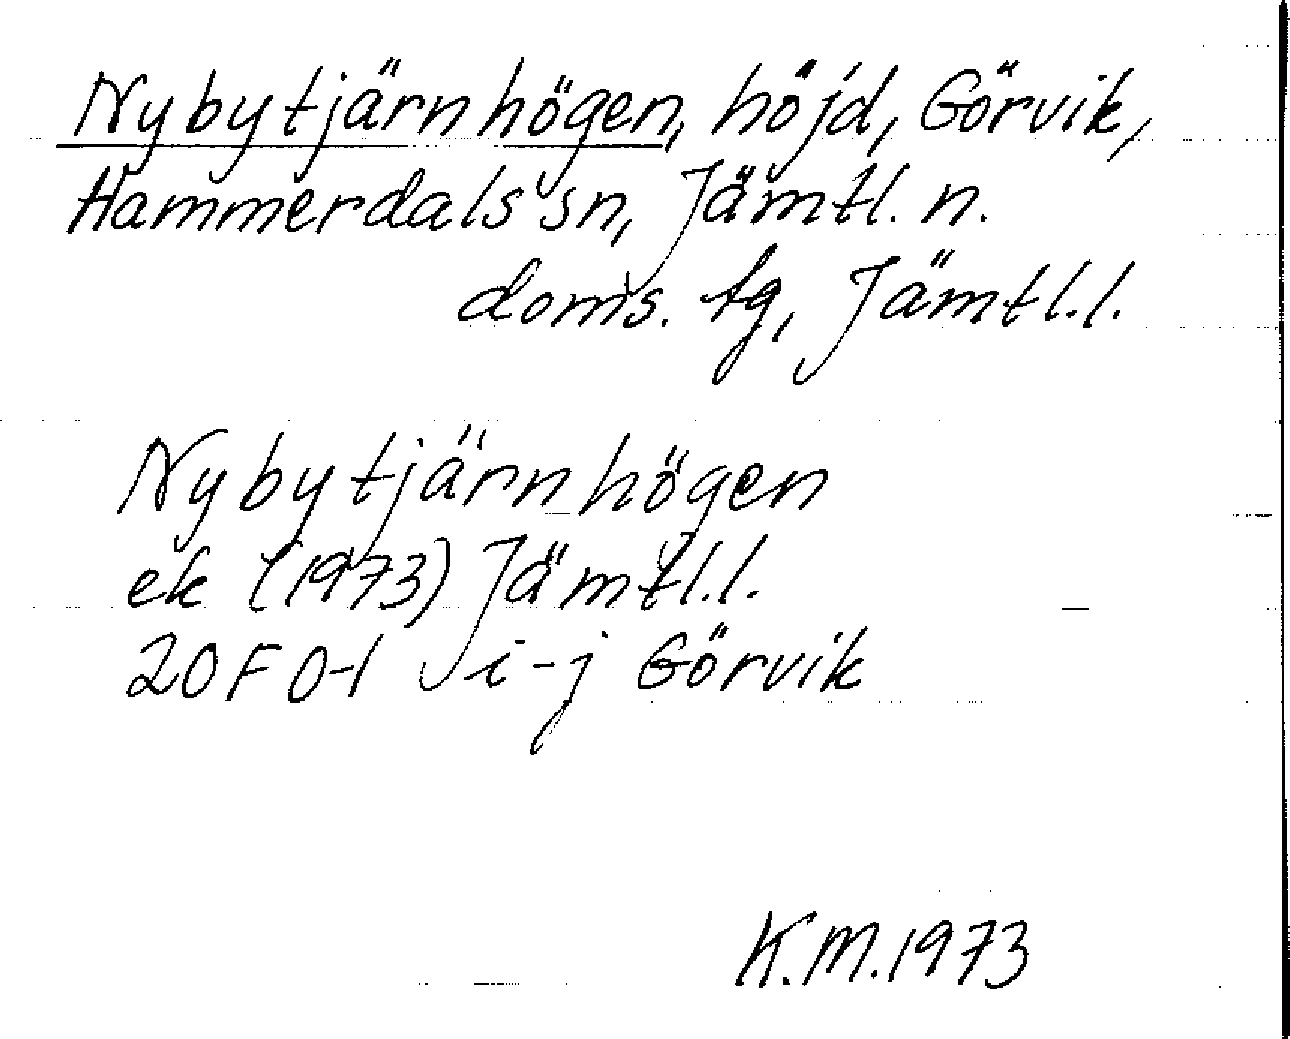 Nybytjärnhögen, höjd, Görvik,
Hammerdals sn, Jämtl. n.
doms. tg, Jämtl.l.
Nybytjärnhögen
ek (1973) Jämtl.l.
20F 0-1 i-j Görvik
K.M.1973